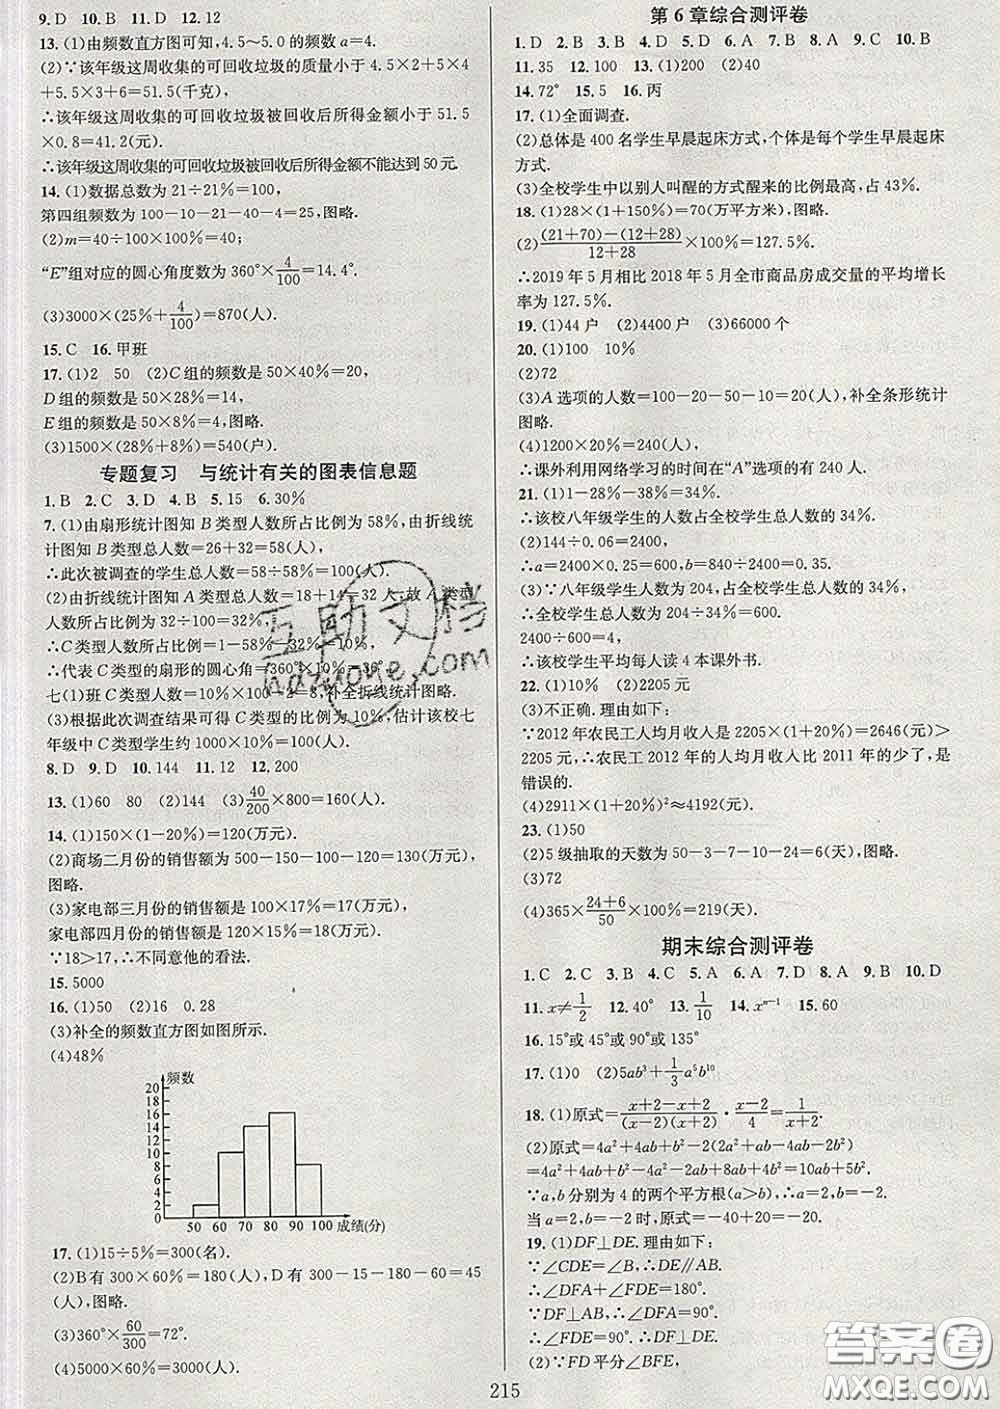 9. D 10. B 11. D 12. 12
13. (1)由频数直方图可知，4.5～5.0的频数a=4.
(2)∵该年级这周收集的可回收垃圾的质量小于4.5×2+5×4+5.5×3+6=51.5(千克),
∴该年级这周收集的可回收垃圾被回收后所得金额小于51.5×0.8=41.2(元).
∴该年级这周收集的可回收垃圾被回收后所得金额不能达到50元.
14. (1)数据总数为21÷21%=100,
第四组频数为100-10-21-40-4=25,图略.
(2)m=40÷100×100%=40;
“E”组对应的圆心角度数为360°×4/100=14.4°.
(3)3000×(25%+4/100)=870(人).
15. C 16. 甲班
17. (1)2 50 (2)C组的频数是50×40%=20,
D组的频数是50×28%=14,
E组的频数是50×8%=4,图略.
(3)1500×(28%+8%)=540(户).
专题复习 与统计有关的图表信息题
1. B 2. C 3. D 4. B 5. 15 6. 30%
7. (1)由扇形统计图知B类型人数所占比例为58%,由折线统计图知B类型总人数=26+32=58(人),
∴此次被调查的学生总人数=58÷58%=100(人).
(2)由折线统计图知A类型总人数=18+14=32人,故A类型人数所占比例为32÷100=32%,
∴C类型人数所占比例=1-58%-32%=10%,
∴代表C类型的扇形的圆心角=360°×10%=36°,
七(1)班C类型人数=10%×100-2=8,补全折线统计图略.
(3)根据此次调查结果可得C类型的比例为10%,估计该校七年级中C类型学生约1000×10%=100(人).
8. D 9. D 10. 144 11. 12 12. 200
13. (1)60 80 (2)144 (3)40/200×800=160(人).
14. (1)150×(1-20%)=120(万元).
(2)商场二月份的销售额为500-150-100-120=130(万元),图略.
(3)家电部三月份的销售额是100×17%=17(万元),
家电部四月份的销售额是120×15%=18(万元).
∵18>17,∴不同意他的看法.
15. 5000
16. (1)50 (2)16 0.28
(3)补全的频数直方图如图所示.
(4)48%
频数
20
18
16
14
12
10
8
6
4
2
0
50 60 70 80 90 100 成绩(分)
17. (1)15÷5%=300(名).
(2)B有300×60%=180(人),D有300-15-180-60=45(人),图略.
(3)360°×60/300=72°.
(4)5000×60%=3000(人).
第6章综合测评卷
1. D 2. B 3. B 4. D 5. D 6. A 7. B 8. A 9. C 10. B
11. 35 12. 100 13. (1)200 (2)40
14. 72° 15. 5 16. 丙
17. (1)全面调查.
(2)总体是400名学生早晨起床方式,个体是每个学生早晨起床方式.
(3)全校学生中以别人叫醒的方式醒来的比例最高,占43%.
18. (1)28×(1+150%)=70(万平方米),图略.
(2)(21+70)-(12+28)/12+28×100%=127.5%.
∴2019年5月相比2018年5月全市商品房成交量的平均增长率为127.5%.
19. (1)44户 (2)4400户 (3)66000个
20. (1)100 10%
(2)72
(3)A选项的人数=100-20-50-10=20(人),补全条形统计图略.
(4)1200×20%=240(人),
∴课外利用网络学习的时间在“A”选项的有240人.
21. (1)1-28%-38%=34%.
∴该校八年级学生的人数占全校学生总人数的34%.
(2)144÷0.06=2400,
∴a=2400×0.25=600,b=840÷2400=0.35.
(3)∵八年级学生人数为204,占全校学生总人数的34%,
∴全校学生总人数为204÷34%=600.
2400÷600=4,
∴该校学生平均每人读4本课外书.
22. (1)10% (2)2205元
(3)不正确.理由如下:
∵2012年农民工人均月收入是2205×(1+20%)=2646(元)>2205(元),∴农民工2012年的人均月收入比2011年的少了,是错误的.
(4)2911×(1+20%)²≈4192(元).
23. (1)50
(2)5级抽取的天数为50-3-7-10-24=6(天),图略.
(3)72
(4)365×24+6/50×100%=219(天).
期末综合测评卷
1. C 2. C 3. B 4. C 5. A 6. A 7. D 8. A 9. B 10. D
11. x≠1/2 12. 40° 13. 1/10 14. xⁿ⁻¹ 15. 60
16. 15°或45°或90°或135°
17. (1)0 (2)5ab³+1/3a⁵b¹⁰
18. (1)原式=x+2-x+2/(x-2)(x+2)·x-2/4=1/x+2.
(2)原式=4a²+4ab+b²-2(2a²+ab-4ab-2b²)
=4a²+4ab+b²-4a²+6ab+4b²=10ab+5b².
∵a,b分别为4的两个平方根(a>b),∴a=2,b=-2.
当a=2,b=-2时,原式=-40+20=-20.
19. (1)DF⊥DE.理由如下:
∵∠CDE=∠B,∴DE∥AB.
∴∠DFA+∠FDE=180°.
∵DF⊥AB,∴∠DFA=90°.
∴∠FDE=90°.∴DF⊥DE.
(2)∵FD平分∠BFE,
215
互助文档
hdzuone.com
答案圈
MXQE.COM